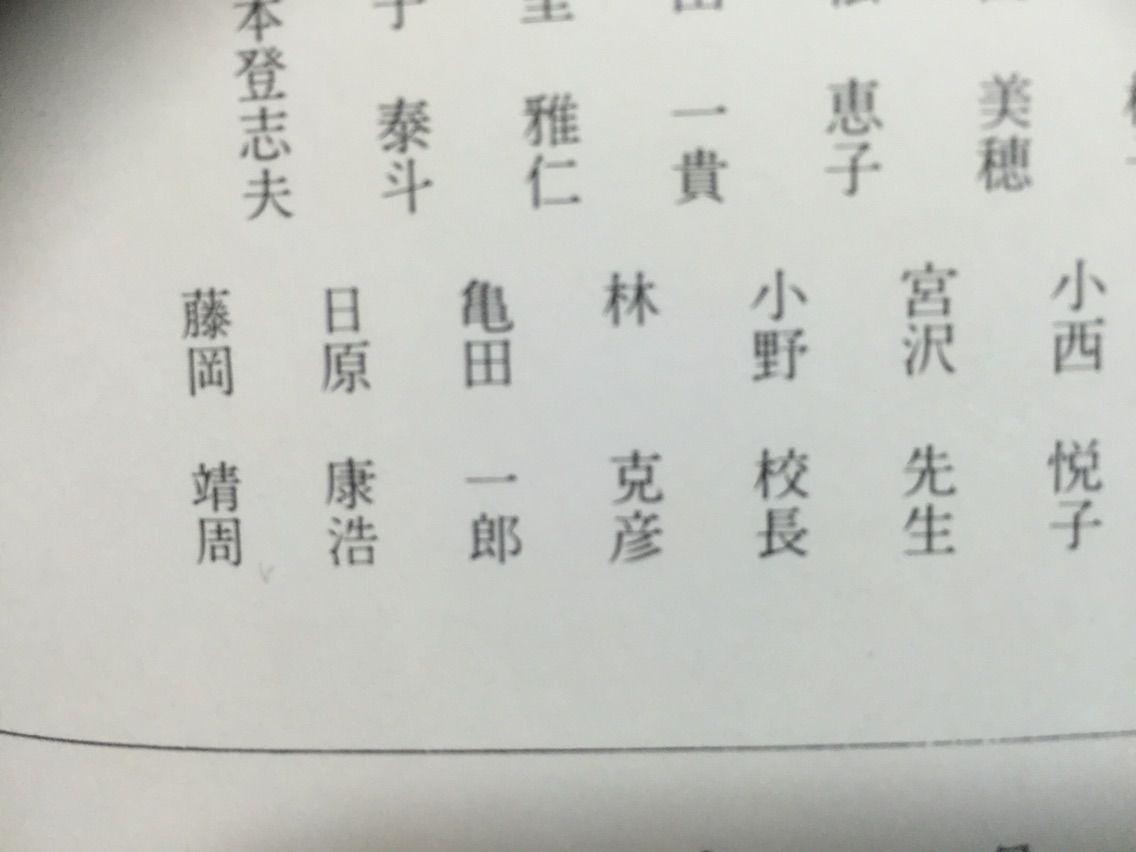 美穂
恵子
一貴
雅仁
泰斗
本登志夫
小西 悦子
宮沢 先生
小野 校長
林 克彦
亀田 一郎
日原 康浩
藤岡 靖周